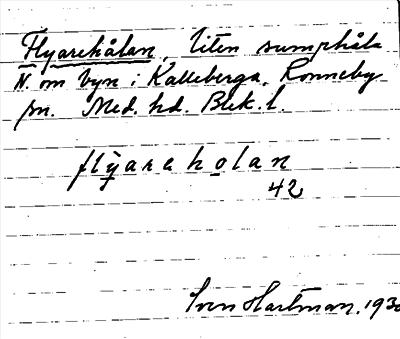 Flyarehålan, liten sumphåla
N. om byn i Kalleberga, Ronneby
sn. Med. hd. Blek. l.
flyarehọlan
42
Sven Hartman, 1930